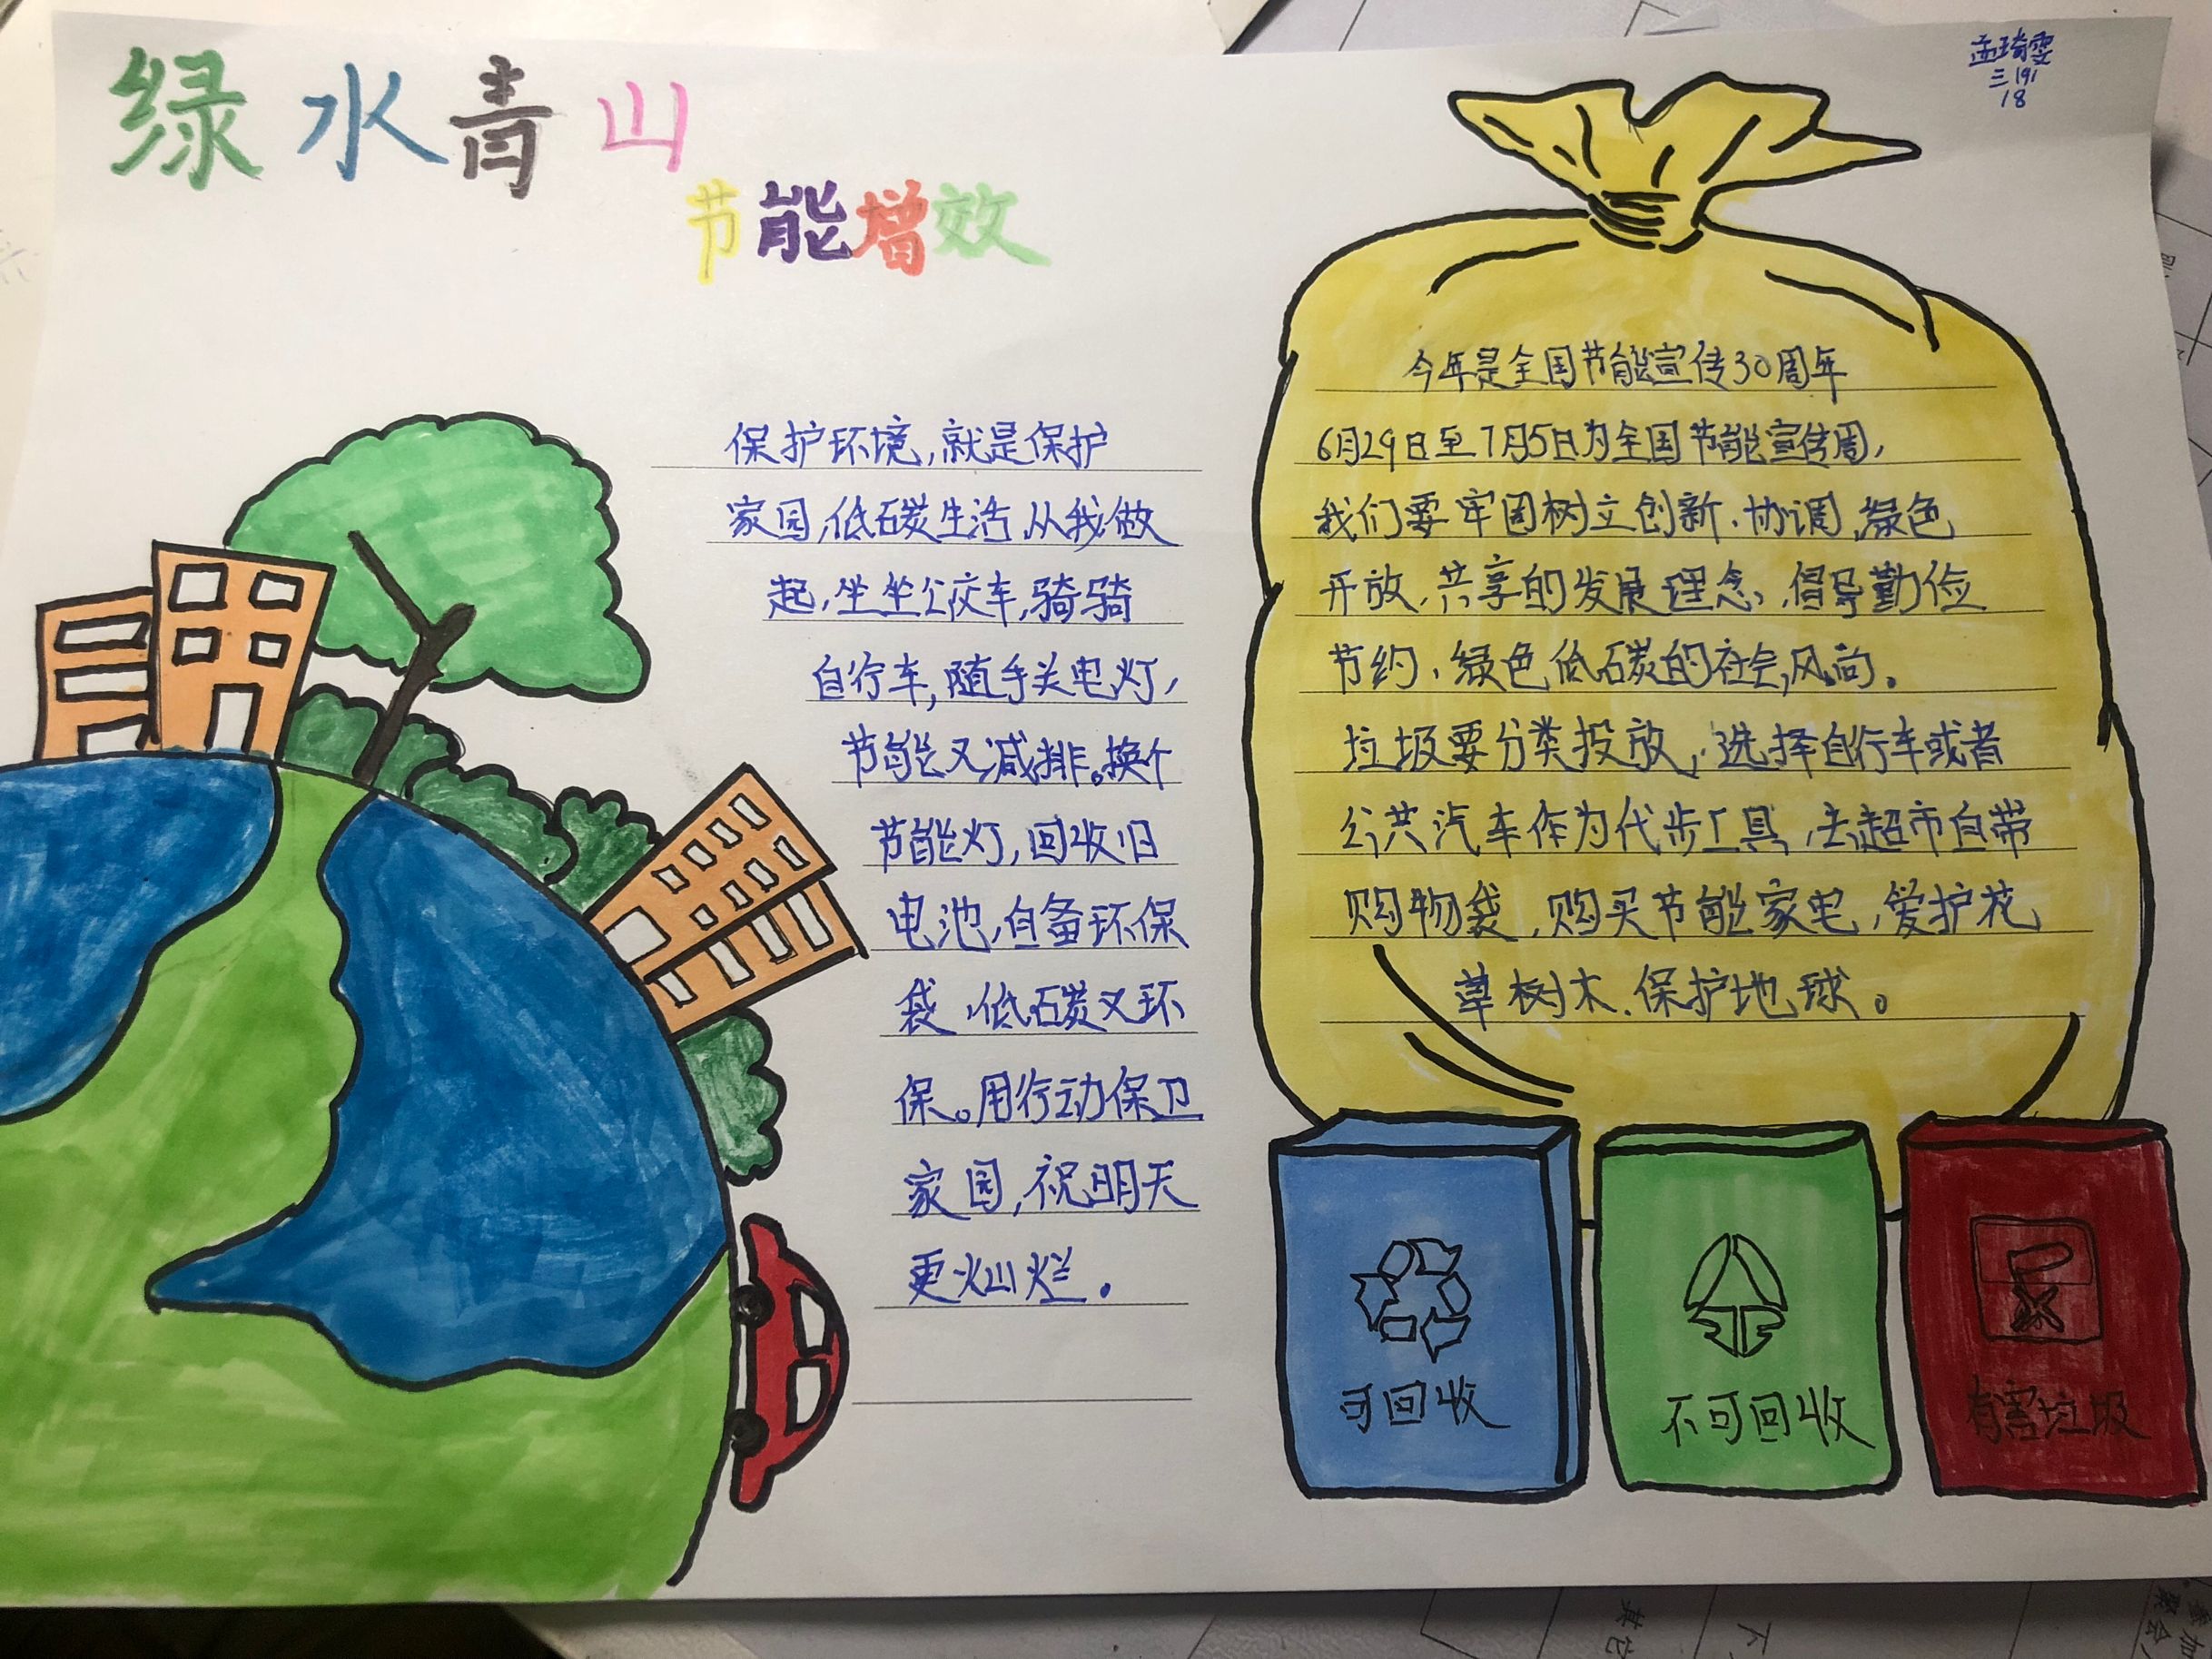 绿水青山
节能增效
三191
18
保护环境,就是保护
家园,低碳生活,从我做
起,坐坐公交车,骑骑
自行车,随手关电灯,
节能又减排。换个
节能灯,回收旧
电池,自备环保
袋,低碳又环
保。用行动保卫
家园,祝明天
更灿烂。
今年是全国节能宣传30周年
6月29日至7月5日为全国节能宣传周,
我们要牢固树立创新、协调,绿色
开放,共享的发展理念,倡导勤俭
节约,绿色低碳的社会风尚。
垃圾要分类投放,选择自行车或者
公共汽车作为代步工具,去超市自带
购物袋,购买节能家电,爱护花
草树木、保护地球。
可回收
不可回收
有害垃圾
其它
下